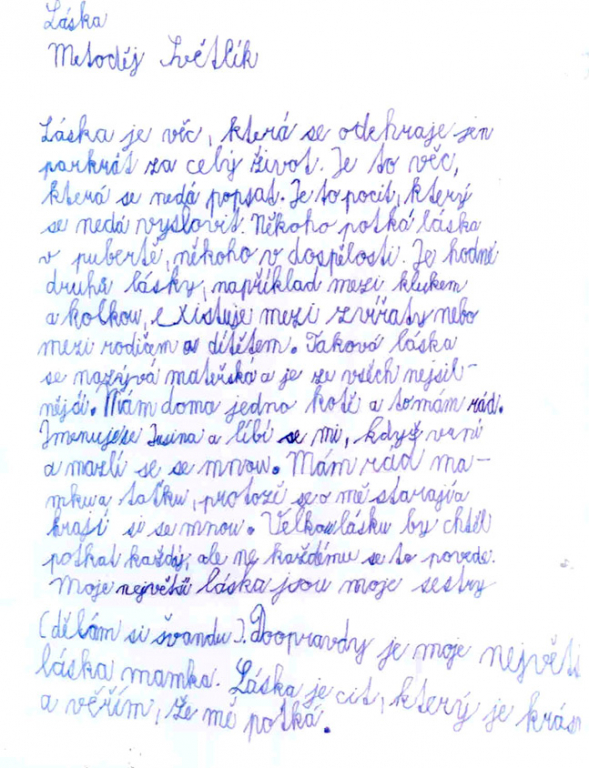 Láska
Metoděj Světlík
Láska je věc, která se odehraje jen
parkrát za celý život. Je to věc,
která se nedá popsat. Je to pocit, který
se nedá vyslovit. Někoho potká láska
v pubertě, někoho v dospělosti. Je hodně
druhů lásky, například mezi klukem
a holkou, existuje mezi zvířaty nebo
mezi rodičem a dítětem. Taková láska
se nazývá mateřská a je ze všech nejsil-
nější. Mám doma jedno kotě a to mám rád.
Jmenuje se a líbí se mi, když vrní
a mazlí se se mnou. Mám rád ma-
mku a taťku, protože se o mě starají a
hrají si se mnou. Velkou lásku by chtěl
potkat každý, ale ne každému se to povede.
Moje největší láska jsou moje sestry
(dělám si švandu). Doopravdy je moje největš
láska mamka. Láska je cit, který je krás
a věřím, že mě potká.